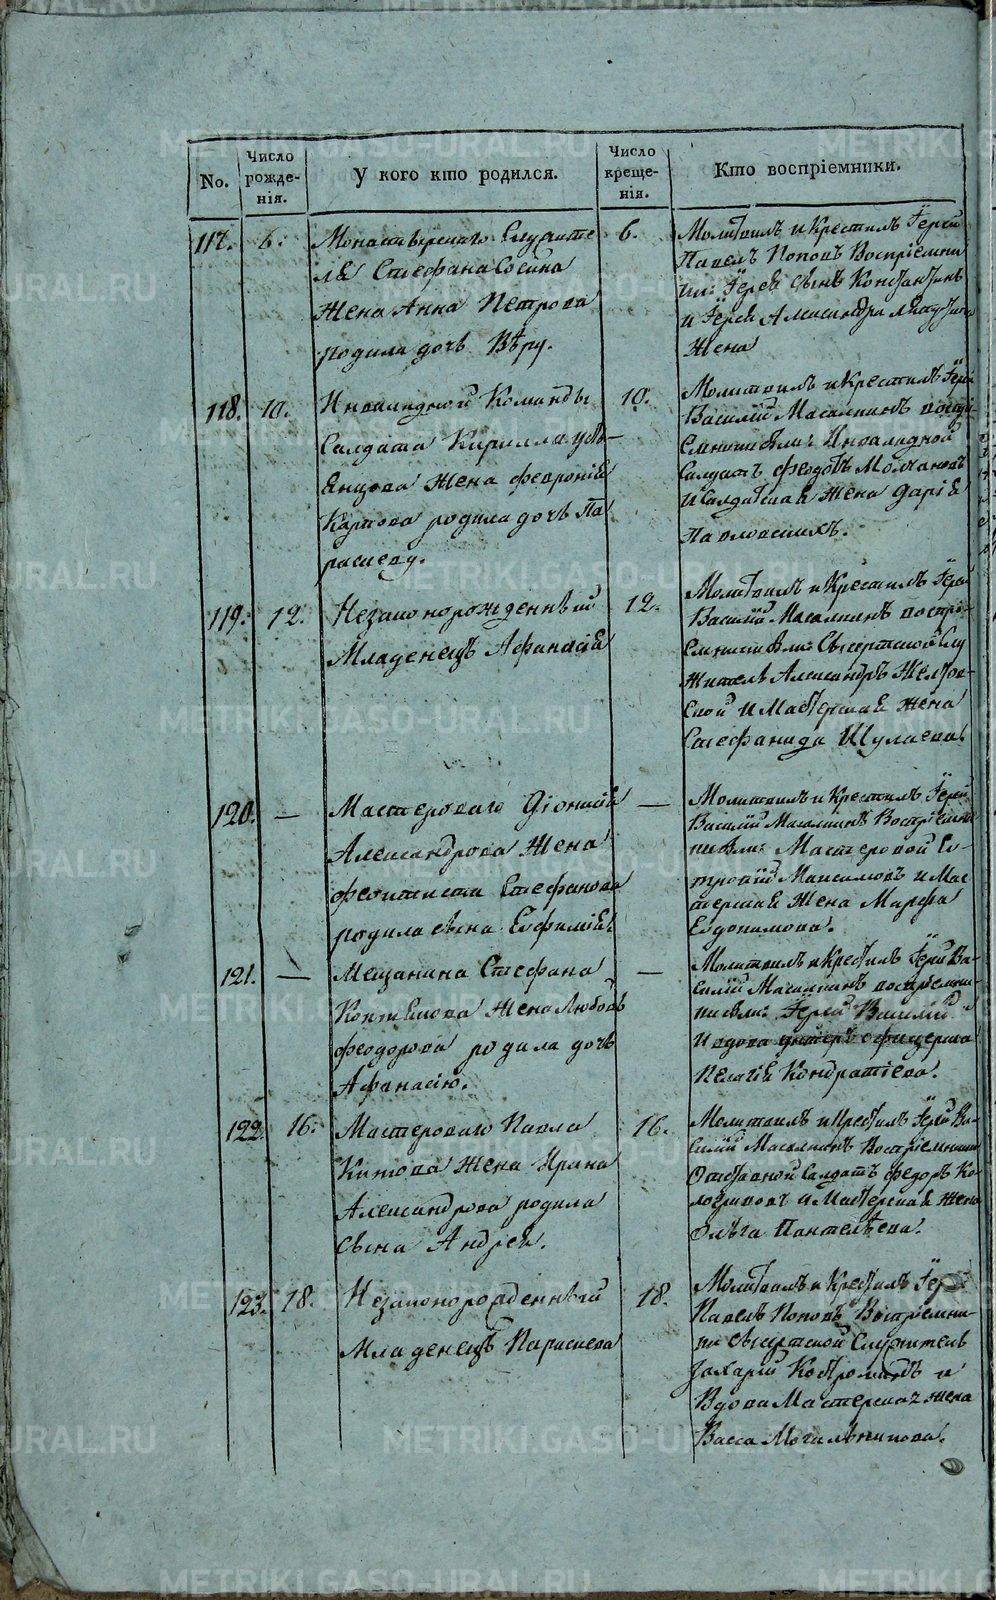 No.
Число рожде-нія.
У кого кто родился.
Число креще-нія.
Кто воспріемники.
117.
6.
Монастырскаго Служите
ля Стефана Сосина
жена Анна Петрова
родила дочь Вѣру.
6.
Молитвилъ и крестилъ Іерей
Павелъ Поповъ Воспріемни
ки: Іерея сынъ Константинъ
и Іерея Александра
жена
118.
10.
Инвалидной Команды
Салдата Кирилла
жена Февронія
Карпова родила дочь Па
раскеву.
10.
Молитвилъ и крестилъ Іерей
Василій Масалкинъ воспрі-
емники были: Инвалидной
Салдатъ Федотъ Молчановъ
и Салдатская жена Дарія
Павловскихъ.
119.
12.
Незаконорожденный
Младенецъ Афанасій
12.
Молитвилъ и крестилъ Іерей
Василій Масалкинъ воспрі-
емники были: Сысертской Слу
житель Александръ
и Мастерская жена
Стефанида Шулаева.
120.
—
Мастероваго Діонисія
Александрова жена
Феоктиста Стефанова
родила сына Евфимія.
—
Молитвилъ и крестилъ Іерей
Василій Масалкинъ Воспріемни
ки были: Мастеровой Ев-
тропій Максимовъ и Мас
терская жена Марфа
Евдокимова.
121.
—
Мещанина Стефана
Коптякова жена Любовь
Феодорова родила дочь
Афанасію.
—
Молитвилъ и крестилъ Іерей Ва-
силій Масалкинъ воспріемни-
ки были: Іерей Василій
и вдова унтеръ офицерша
Пелагія Кондратіева.
122.
16.
Мастероваго Павла
Китова жена Ирина
Александрова родила
сына Андрея.
16.
Молитвилъ и крестилъ Іерей Ва-
силій Масалкинъ Воспріемники
Отставной Салдатъ Федоръ Ко-
и Мастерская жена
Ольга Пантелѣева.
123.
18.
Незаконорожденный
Младенецъ Параскева
18.
Молитвилъ и крестилъ Іерей
Павелъ Поповъ Воспріемни-
ки Сысертской Служитель
Захарій и
Вдова Мастерская жена
Васса Могильникова.
METRIKI.GASO-URAL.RU